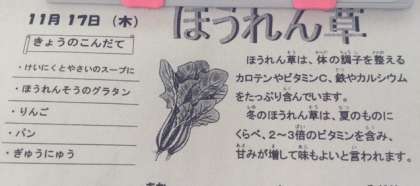 11月 17日 (木)
きょうのこんだて
・けいにくとやさいのスープに
・ほうれんそうのグラタン
・りんご
・パン
・ぎゅうにゅう
ほうれん草
ほうれん草は、体の調子を整える
カロテンやビタミンC、鉄やカルシウム
をたっぷり含んでいます。
冬のほうれん草は、夏のものに
くらべ、2～3倍のビタミンを含み、
甘みが増して味もよいと言われます。